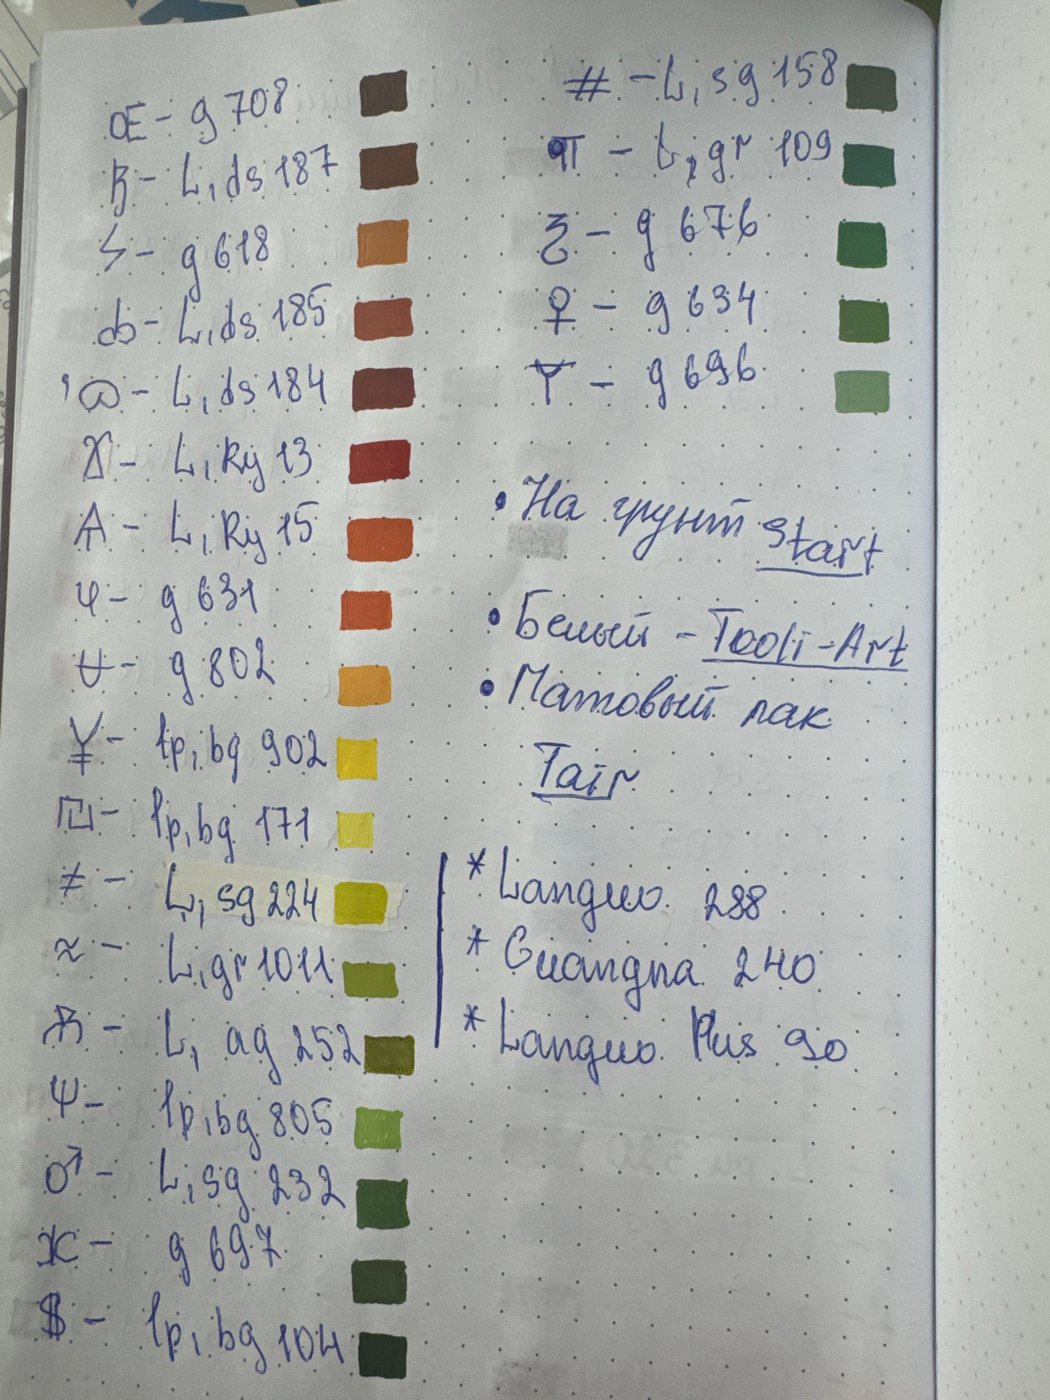 Œ - g 708
Ꞵ - L, ds 187
ϟ - g 618
ȸ - L, ds 185
'Თ - L, ds 184
Ɣ - L, Ry 13
A - L, Ry 15
Ψ - g 631
U - g 802
¥ - lp, bg 902
₪ - lp, bg 171
≠ - L, sg 224
≈ - L, gr 1011
Ж - L, ag 252
Ψ - lp, bg 805
♂ - L, sg 232
Ж - g 697
$ - lp, bg 104
# - L, sg 158
¶ - L, gr 109
g 676
♀ - g 634
g 696
• На грунт Start
• Белый - Tooli-Art
• Матовый лак
Tair
* Languo 288
* Guangna 240
* Languo Plus 90